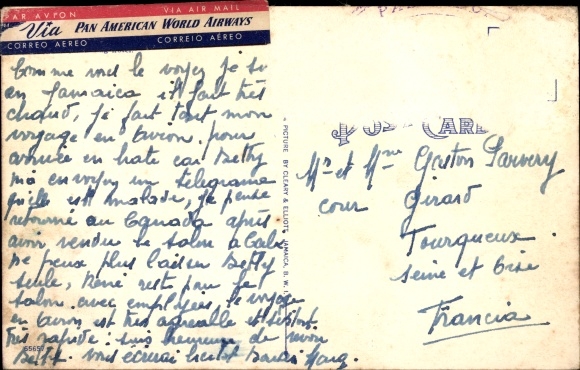 PAR AVION VIA AIR MAIL
Via PAN AMERICAN WORLD AIRWAYS
CORREO AEREO CORREIO AÉREO
Comme vous le voyez je suis
en Jamaica il fait très
chaud, j'ai fait tout mon
voyage en avion pour
arrivée en hate car Betty
m'a envoyer un telegrama
qu'elle est malade, je pense
retourné au Canada après
avoir vendu le salon à
ne peux plus laisser Betty
seule, René rest pour le
salon avec employées, le voyage
en avion est très agreable et
très rapide: suis heureuse de
Betty. vous écrirai bientot
55657
PICTURE BY CLEARY & ELLIOTT, JAMAICA, B. W. I.
POST CARD
Mr et Mme Gaston
cour Girard
Tourqueux
Seine et Oise
Francia